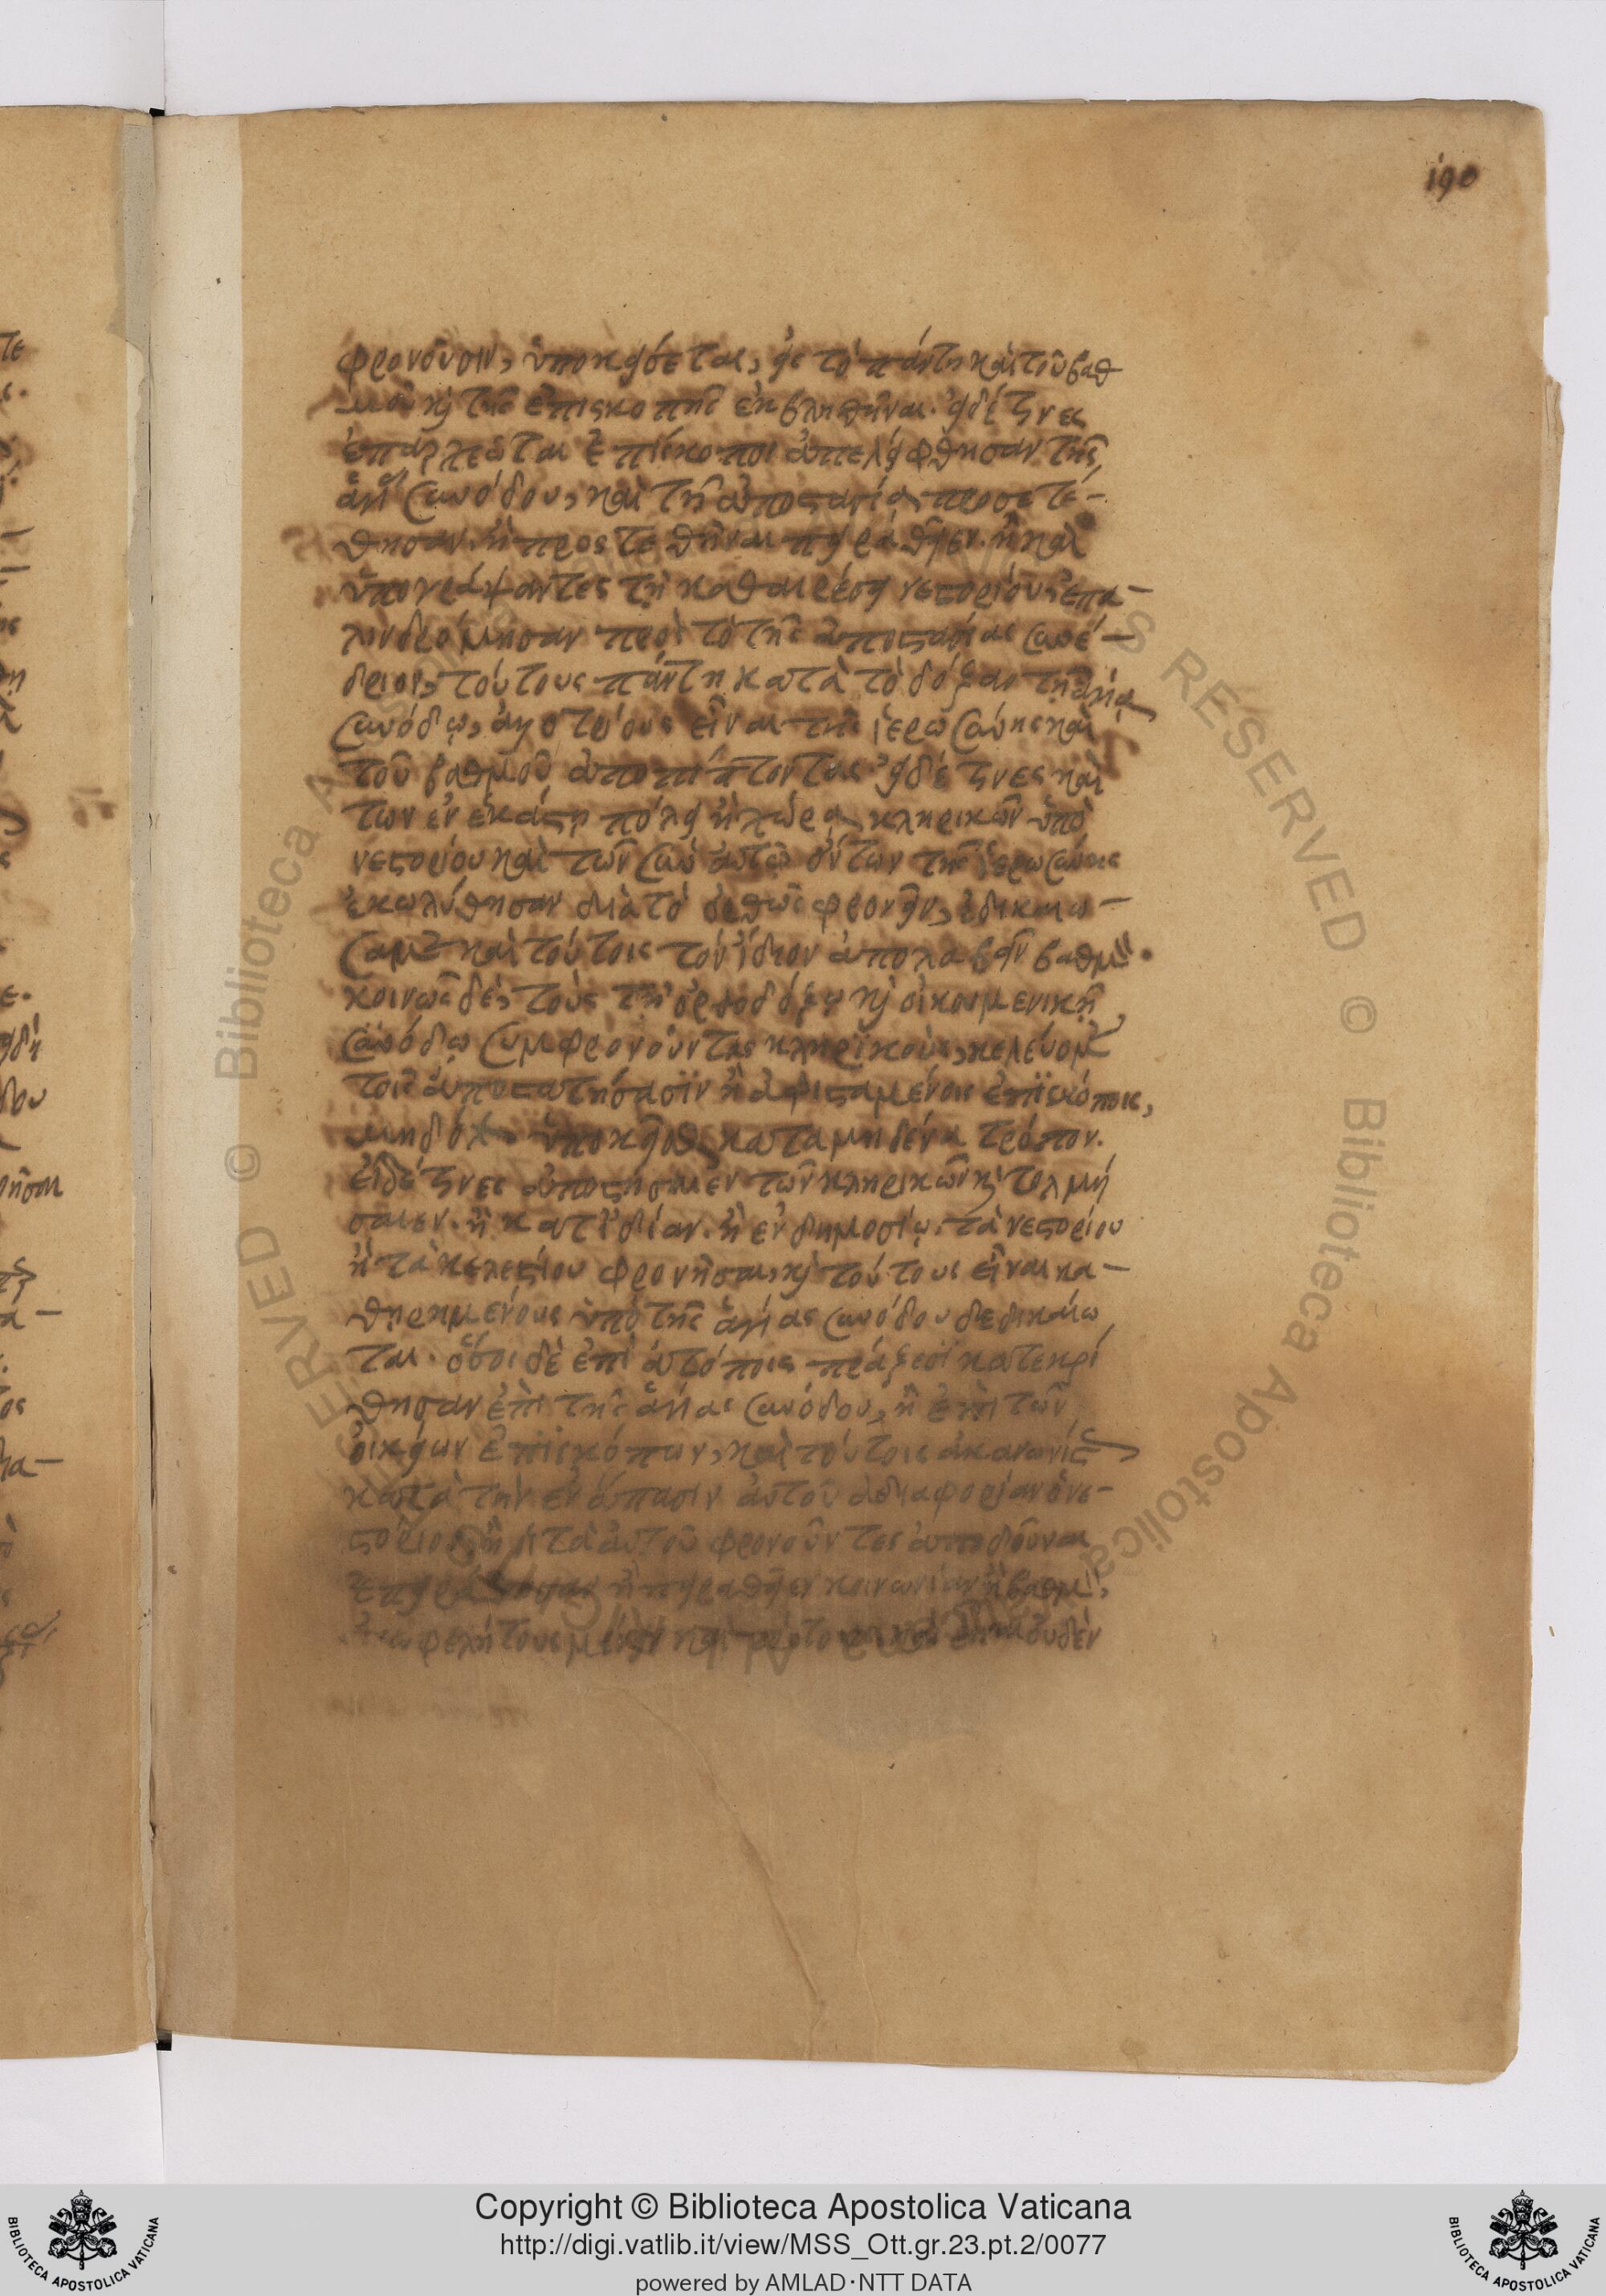 190
φρονοῦσιν, ὑποκείσεται, εἰς τὸ πάντη καὶ τοῦ βαθ
μοῦ καὶ τῆς ἐπισκοπῆς ἐκβληθῆναι. εἰ δέ τινες
ἐπαρχεῶται ἐπίσκοποι ἀπελείφθησαν τῆς
ἁγί συνόδου, καὶ τῆ ἀποστασία προσετέ-
θησαν. ἢ προστεθῆναι πειραθεῖεν. ἢ καὶ
ὑπογράψαντες τῆ καθαιρέσει νεστορίου, ἐπα-
λινδρόμησαν πρὸς τὸ τῆς ἀποστασίας συνέ-
δριον, τούτους πάντη κατὰ τὸ δόξαν τῆ ἁγία
συνόδω, ἀλλοτρίους εἶναι τῆς ἱερωσύνης καὶ
τοῦ βαθμοῦ ἀποπίπτοντας. εἰ δέ τινες καὶ
τῶν ἐν ἑκάστη πόλει ἢ χώρα κληρικῶν ὑπὸ
νεστορίου καὶ τῶν σὺν αὐτῶ ὄντων τῆς ἱερωσύνης
ἐκωλύθησαν διὰ τὸ ὀρθῶς φρονεῖν, ἐδικαιώ-
σαμεν καὶ τούτοις τὸν ἴδιον ἀπολαβεῖν βαθμόν.
κοινῶς δὲ, τοὺς τῆ ὀρθοδόξω καὶ οἰκουμενικῆ
συνόδω συμφρονοῦντας κληρικοὺς, κελεύομεν
τοῖς ἀποστατήσασϊν ἢ ἀφισταμένοις ἐπϊσκόποις,
μηδόλως ὑποκεῖσθαι κατα μηδένα τρόπον.
εἰ δέ τινες ἀποστήσαιεν τῶν κληρικῶν καὶ τολμή
σαιεν. ἢ κατ ἰδίαν. ἢ ἐν δημοσίω. τὰ νεστορίου
ἢ τὰ κελεστίου φρονῆσαι, καὶ τούτους εἶναι κα-
θηρημένους ὑπὸ τῆς ἁγίας συνόδου δεδικαίω
ται. ὅσοι δὲ ἐπὶ ἀτόποις πράξεσϊ κατεκρί
θησαν ἐπὶ τῆς ἁγίας συνόδου, ἢ ἐπὶ τῶν
οἰκείων ἐπϊσκόπων, καὶ τούτοις ἀκανονίστως
κατὰ τὴν ἐν ἅπασιν αὐτοῦ ἀδιαφορίαν ὁ νε-
στόριος, ἢ οἱ τὰ αὐτοῦ φρονοῦντες ἀποδοῦναι
ἐπειράθησαν ἢ πειραθεῖεν κοινωνίαν ἢ βαθμ,
ἀνωφελήτους μένειν καὶ οὐδέν